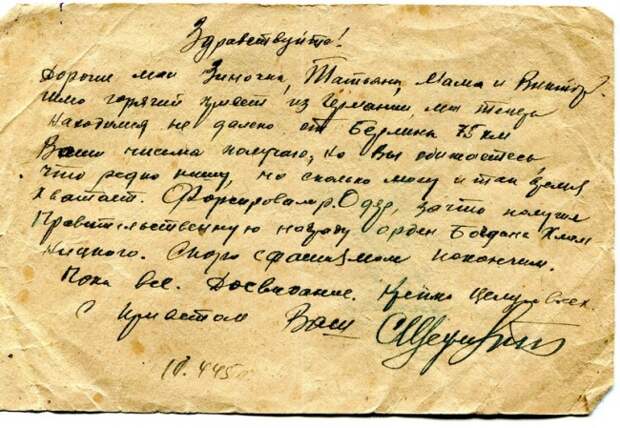 Здравствуйте!
Дорогие мои Зиночка, Татьяна, Мама и Виктор.
Шлю горячий привет из Германии, мы теперь
находимся не далеко от Берлина 75 км
Ваши письма получаю, но Вы обижаетесь,
что редко пишу, но сколько могу и так время
хватает. Форсировал р. Одер, за что получил
Правительственную награду орден Богдана Хмель
ницкого. Скоро с фашизмом покончим.
Пока все. Досвидание. Крепко целую всех.
С приветом Ваш